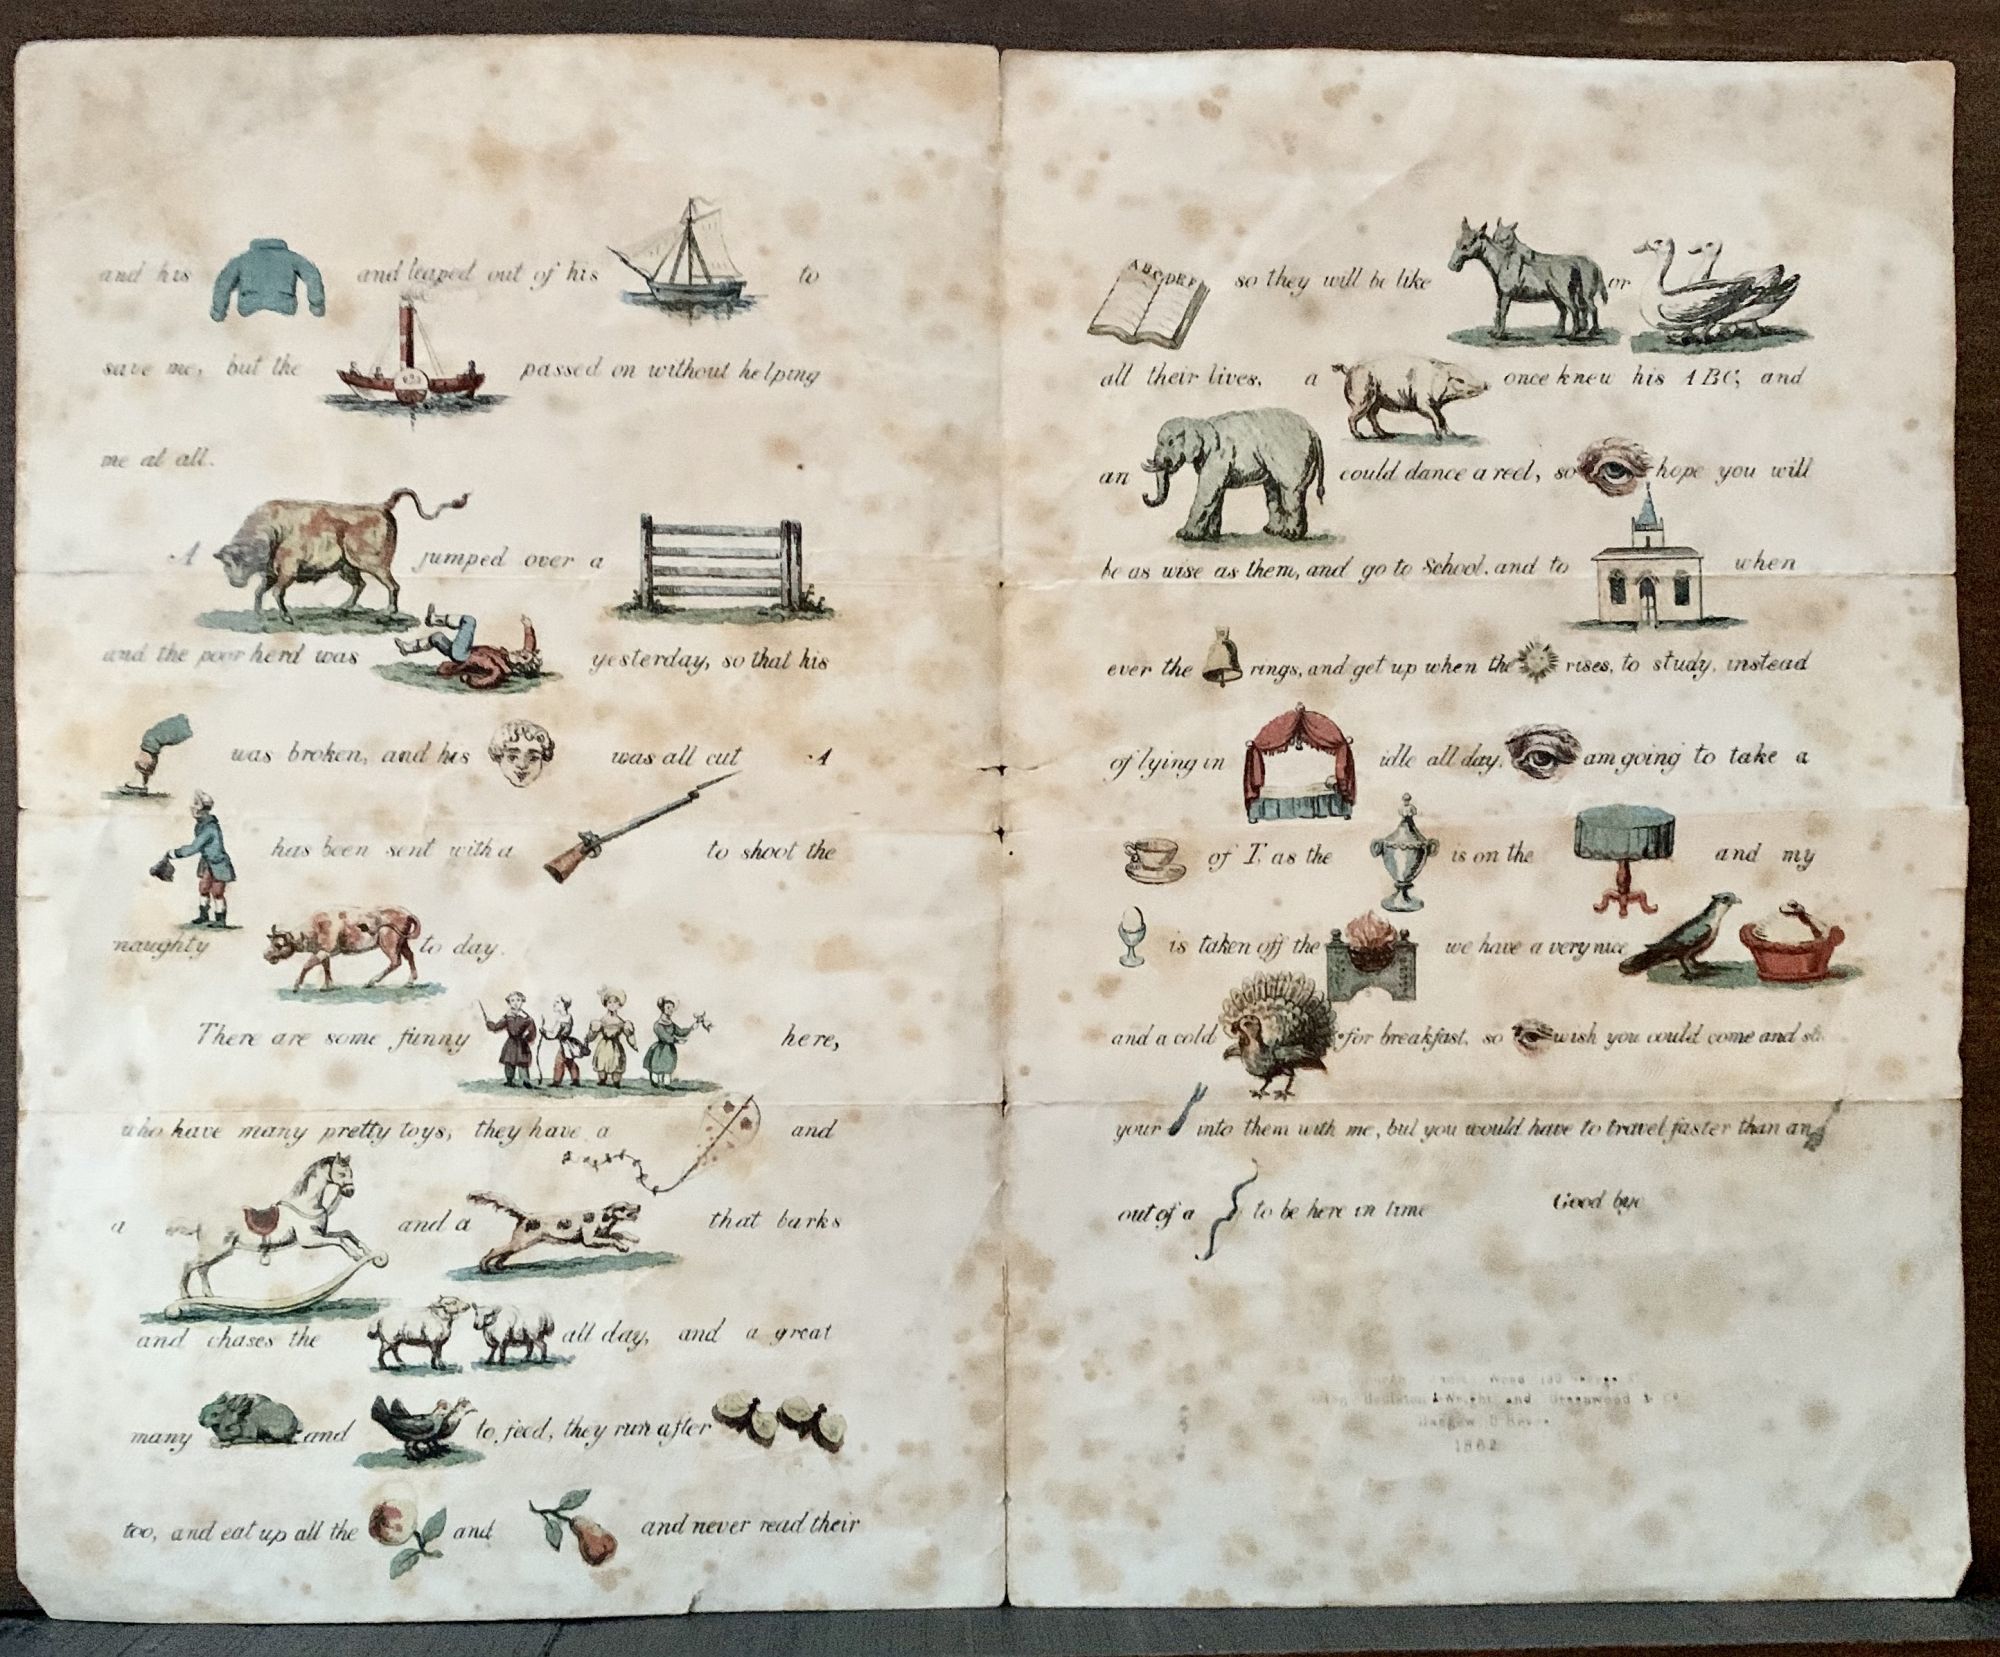 and his and leaped out of his to
save me, but the passed on without helping
me at all.
A jumped over a
and the poor herd was yesterday, so that his
was broken, and his was all cut A
has been sent with a to shoot the
naughty to day.
There are some funny here,
who have many pretty toys, they have a and
a and a that barks
and chases the all day, and a great
many and to feed, they run after
too, and eat up all the and and never read their
ABCDEF so they will be like or
all their lives, a once knew his ABC, and
an could dance a reel, so hope you will
be as wise as them, and go to School, and to when
ever the rings, and get up when the rises, to study, instead
of lying in idle all day, am going to take a
of T, as the is on the and my
is taken off the we have a very nice
and a cold for breakfast, so wish you could come and
your into them with me, but you would have to travel faster than an
out of a to be here in time Good bye
Wood
and Greenwood
1862